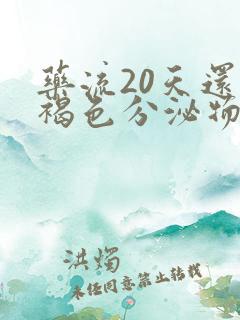 藥流20天還
褐色分泌物
洪燭
未经同意禁止转载